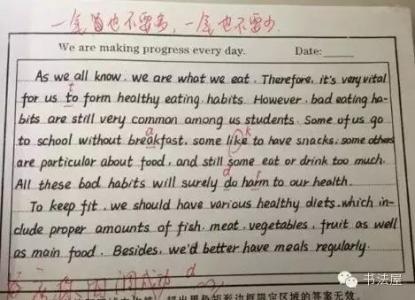 一
也不要多，一
也不要少
We are making progress every day. Date:
As we all know, we are what we eat. Therefore, it's very vital
t
for us to form healthy eating habits. However, bad eating ha-
bits are still very common among us students. Some of us go
a k
to school without breakfast, some like to have snacks, some others
are particular about food, and still some eat or drink too much.
d r
All these bad habits will surely do harm to our health.
To keep fit, we should have various healthy diets, which in-
clude proper amounts of fish, meat, vegetables, fruit as well
as main food. Besides, we'd better have meals regularly.
d
超出黑色矩形边框限定区域的答案无效
书法屋